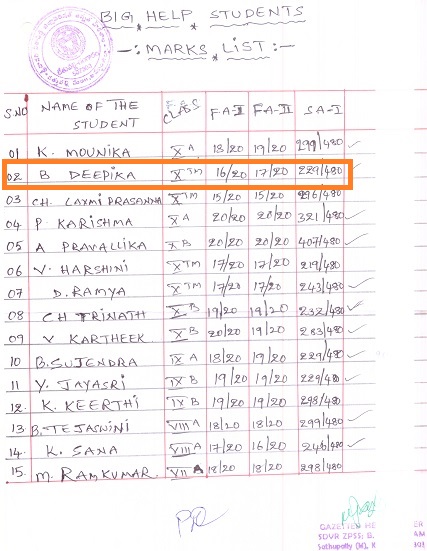 BIG HELP STUDENTS
-: MARKS LIST :-
S.NO NAME OF THE STUDENT CLASS FA-II FA-II SA-I
01 K. MOUNIKA X A 18/20 19/20 299/480
02 B DEEPIKA X TM 16/20 17/20 229/480
03 CH. LAXMI PRASANNA X TM 15/20 15/20 296/480
04 P KARISHMA X A 20/20 20/20 321/480
05 A PRAVALLIKA X B 20/20 20/20 407/480
06 V. HARSHINI X TM 17/20 17/20 219/480
07 D. RAMYA X TM 17/20 17/20 243/480
08 CH TRINATH X B 19/20 19/20 232/480
09 V KARTHEEK X B 20/20 19/20 283/480
10 B. SUJENDRA IX A 18/20 19/20 229/480
11 Y. JAYASRI IX B 19/20 19/20 229/480
12. K. KEERTHI IX B 19/20 19/20 298/480
13 B. TEJASWINI VIII A 18/20 18/20 299/480
14. K. SANA VIII A 17/20 16/20 246/480
15. M. RAMKUMAR VII A 18/20 18/20 298/480
GAZETTED HE
SDVR ZPSS; B.
Sathupally (M),